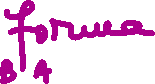 forma
B A